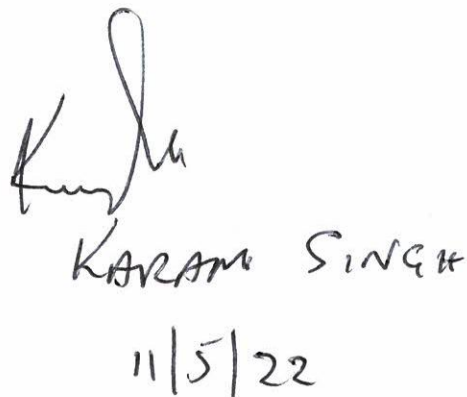 KARAM SINGH
11/5/22